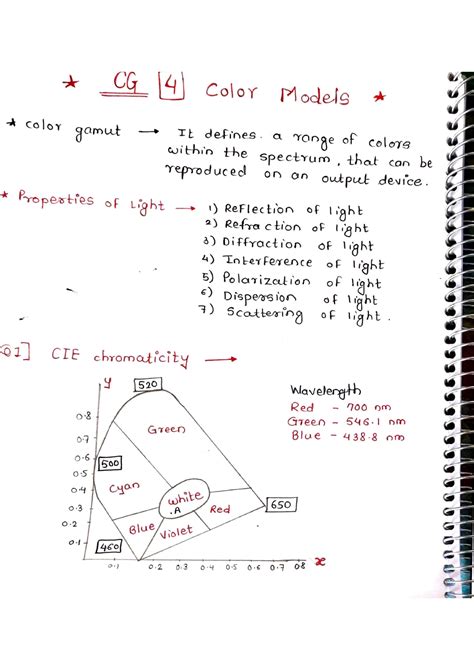 * CG [4] Color Models *
* color gamut → It defines a range of colors
within the spectrum, that can be
reproduced on an output device.
* Properties of Light → 1) Reflection of light
2) Refraction of light
3) Diffraction of light
4) Interference of light
5) Polarization of light
6) Dispersion of light
7) Scattering of light.
Q1] CIE chromaticity →
y
520
Wavelength
Red - 700 nm
Green - 546.1 nm
Blue - 438.8 nm
0.8
Green
0.7
0.6
500
0.5
0.4
Cyan
white
.A
650
0.3
Red
0.2
Blue
Violet
0.1
460
0.1 0.2 0.3 0.4 0.5 0.6 0.7 0.8 x